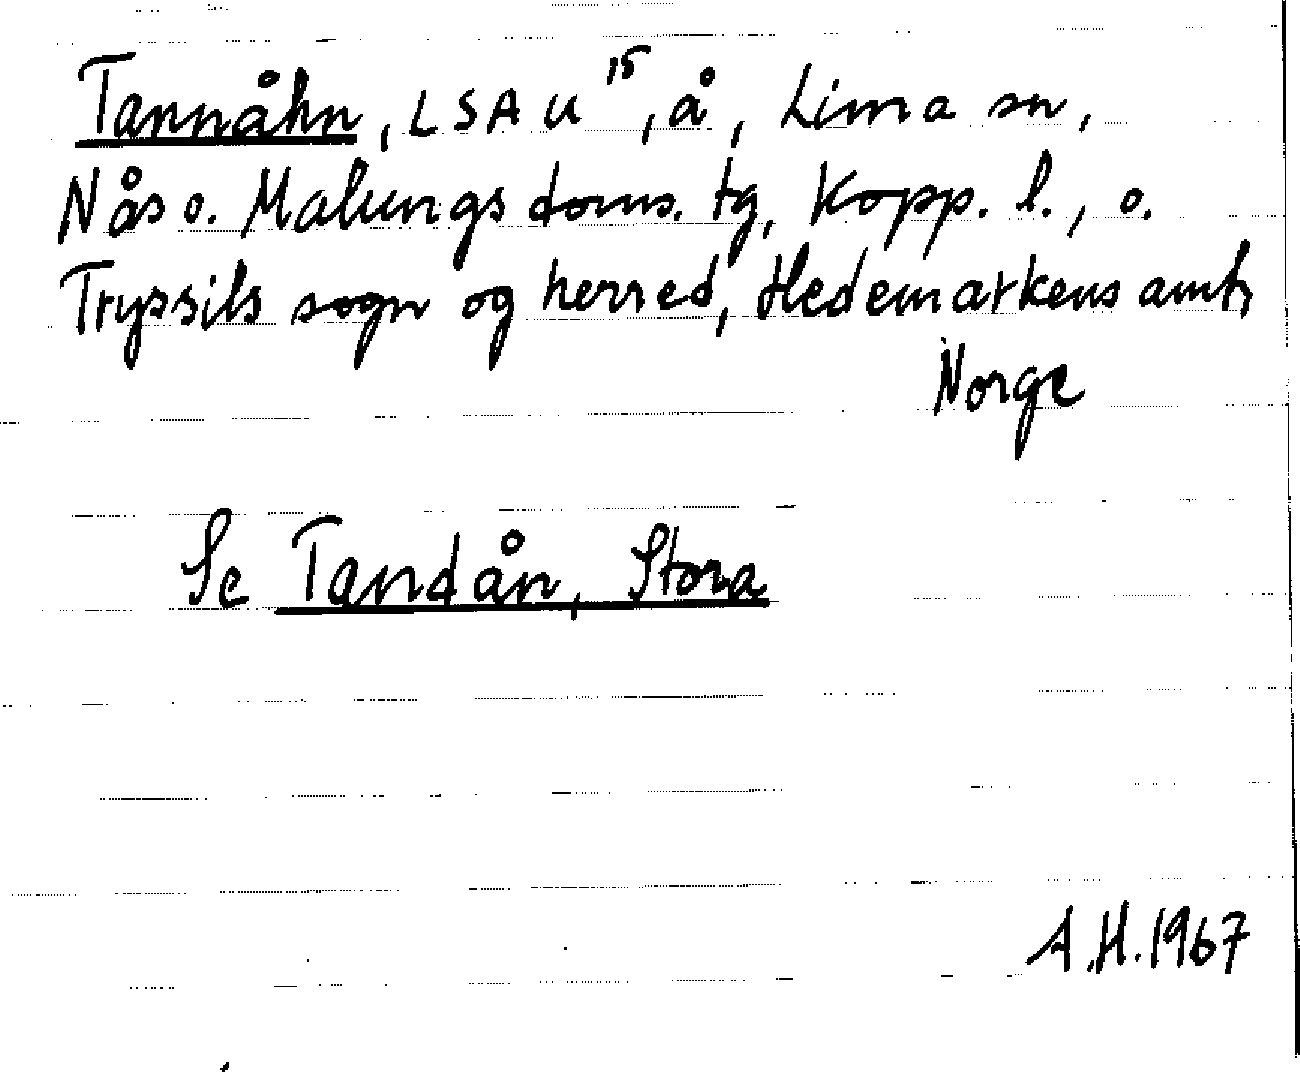 Tannåhn, LSA U 15, å, Lima sn,
Nås o. Malungs doms. tg, Kopp. l., o.
Tryssils sogn og herred, Hedemarkens amt,
Norge
Se Tandån, Stora
A.H. 1967